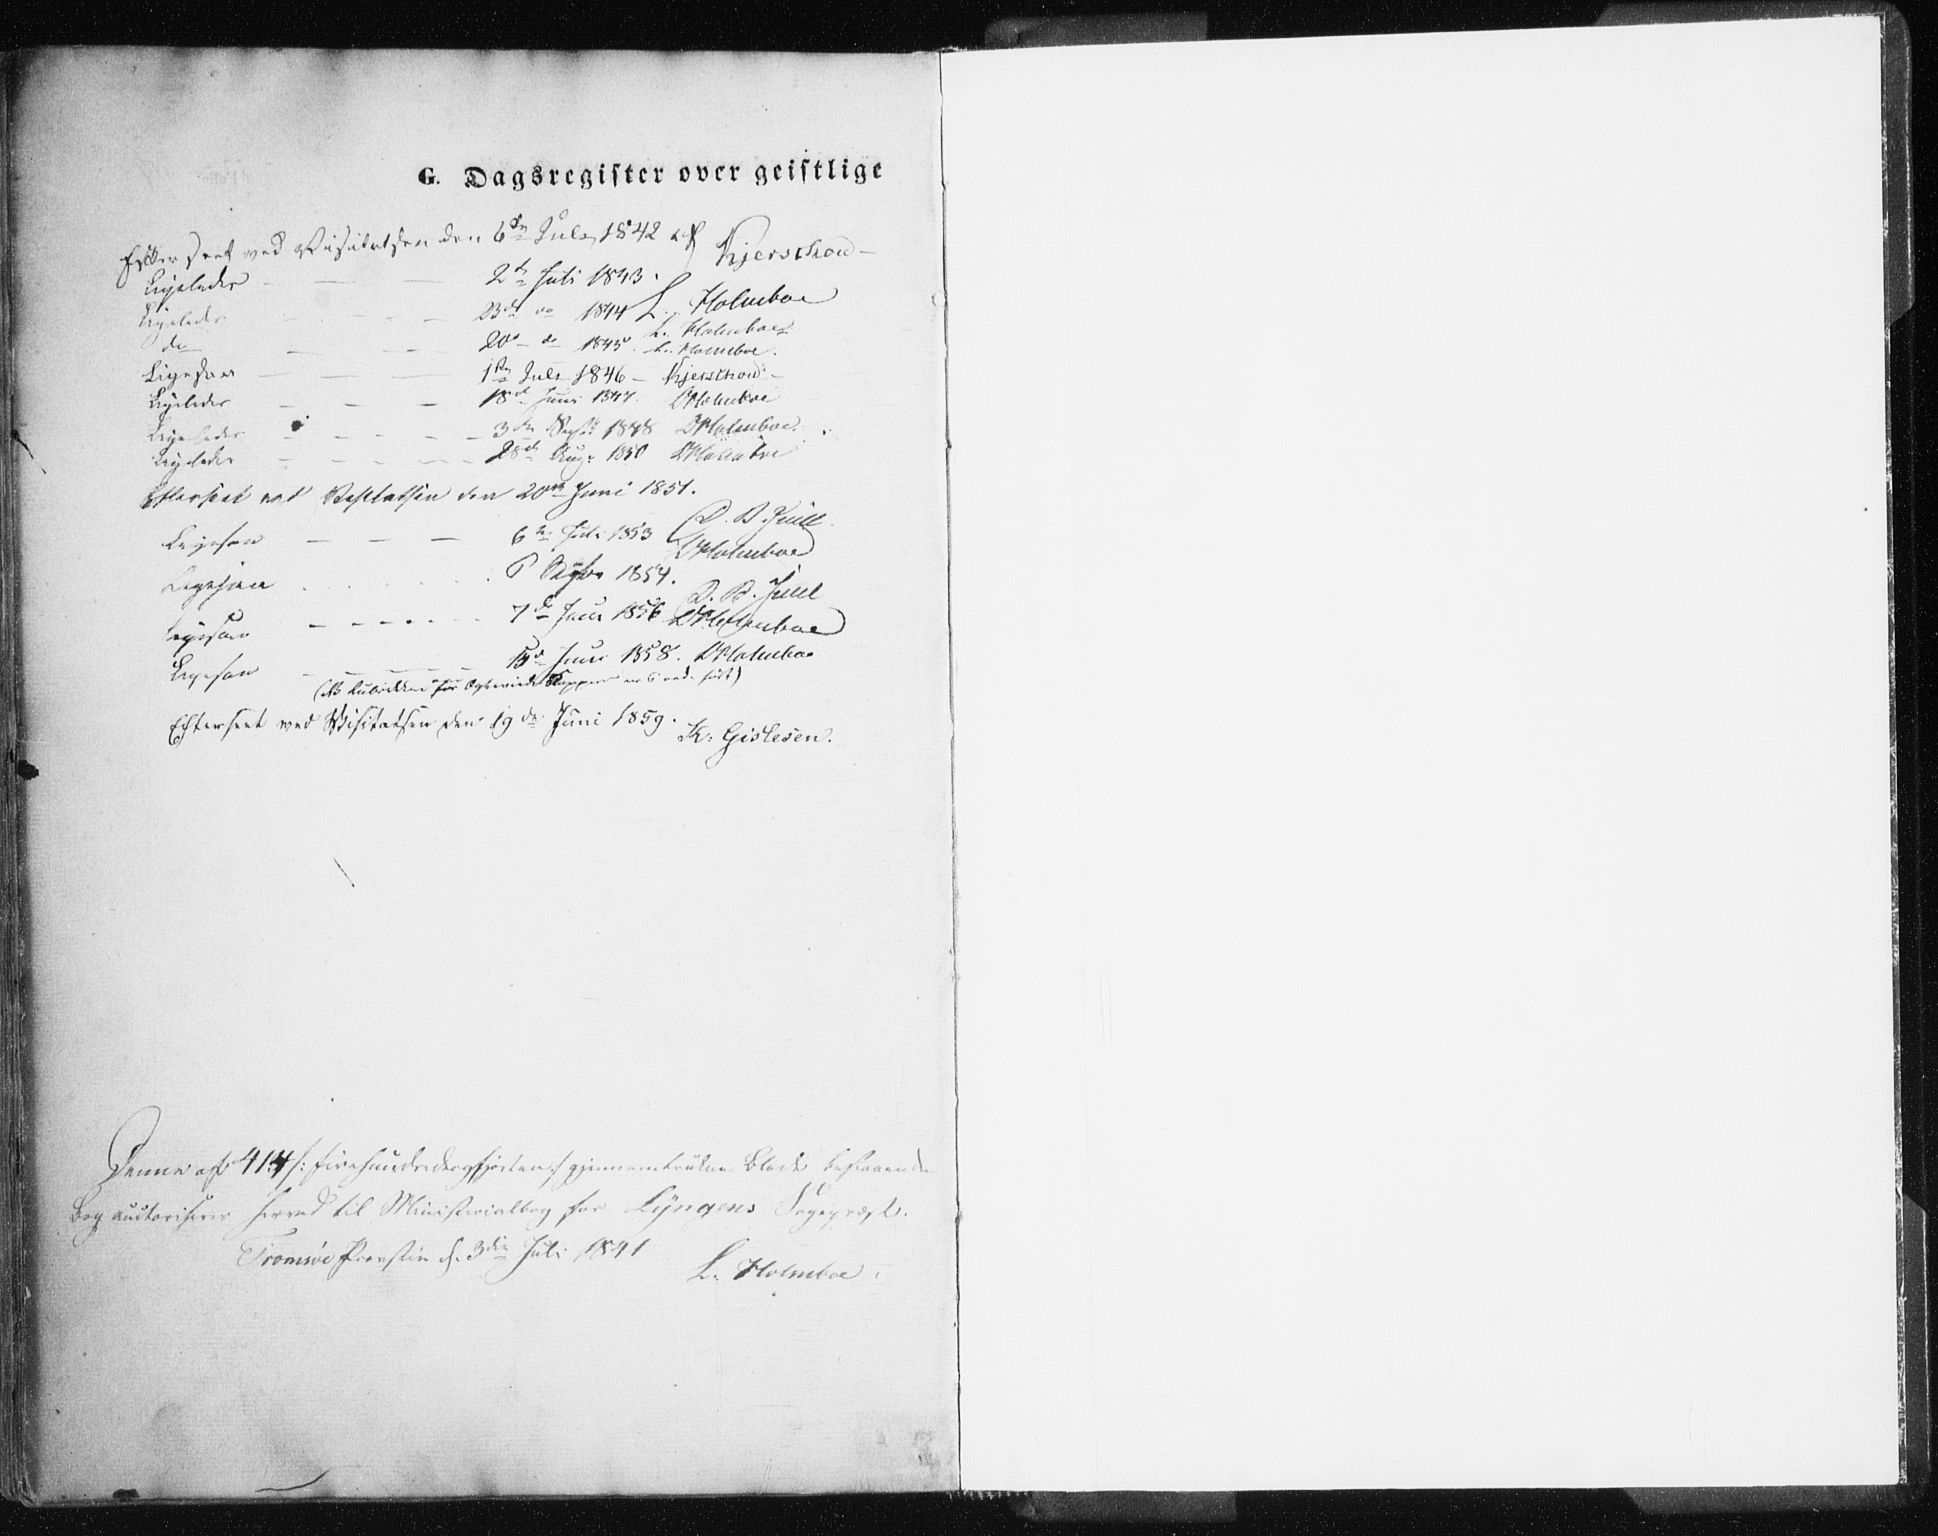 G. Dagsregister over geistlige
Efterseet ved Visitatsen den 6te July 1842 af Kjerschow
Ligeledes — — — 2den Juli 1843. L. Holmboe
Ligeledes — — — 23de do 1844 L. Holmboe
do — — — 20de do 1845. L. Holmboe.
Ligesaa — — — 1ste Juli 1846 — Kjerschow
Ligeledes — — — 18de Juni 1847. LHolmboe
Ligeledes — — — 3die Septr 1848 LHolmboe
Ligeledes — — — 28de Aug. 1850 LHolmboe
Efterseet ved Visitatsen den 20de Juni 1851.
D. B. Juul
Ligesaa — — — 6te Juli 1853 LHolmboe
Ligesaa . . . . 6 Septbr 1854.
D. B. Juul
Ligesaa — — — 7de Juni 1856 LHolmboe
Ligesaa — — — 15de Juni 1858. LHolmboe
(NB Rubrikken for Dagvaccinerede Kopper er ei ført)
Efterseet ved Visitatsen den 19de Juni 1859.
K: Gislesen.
Denne af 414 /: firehundredeogfjorten :/ gjennemtrukne Blade bestaaende
Bog auctoriseres herved til Ministerialbog for Lyngens Sognepræst.
Tromsøe Provstie d. 3die Juli 1841
L. Holmboe